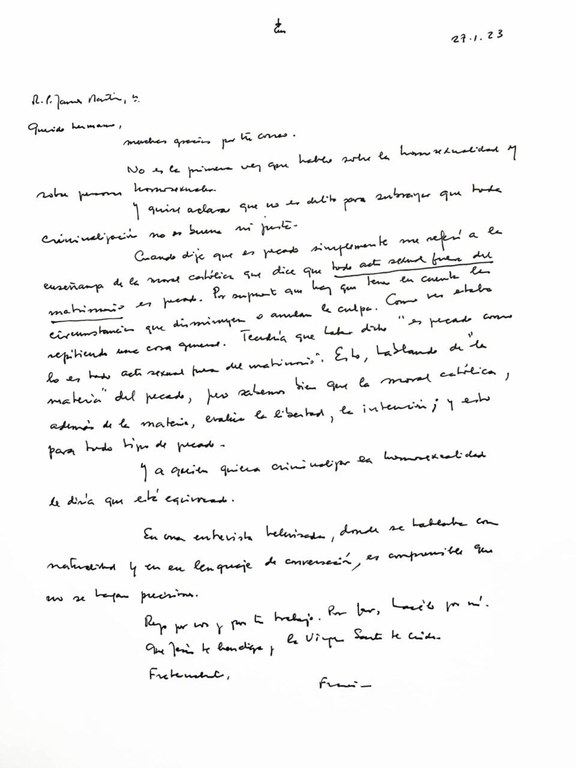 27.1.23
R.P. James Martin, sj.
Querido hermano,
muchas gracias por tu correo.
No es la primera vez que hablo sobre la homosexualidad y
sobre personas homosexuales.
Y quise aclarar que no es delito para subrayar que toda
criminalización no es buena ni justa.
Cuando dije que es pecado simplemente me referí a la
enseñanza de la moral católica que dice que todo acto sexual fuera del
matrimonio es pecado. Por supuesto que hay que tener en cuenta las
circunstancias que disminuyen o anulan la culpa. Como ves estaba
repitiendo una cosa general. Tendría que haber dicho "es pecado como
lo es todo acto sexual fuera del matrimonio". Esto, hablando de "la
materia" del pecado, pero sabemos bien que la moral católica,
además de la materia, evalúa la libertad, la intención; y esto
para todo tipo de pecado.
Y a quien quiera criminalizar la homosexualidad
le diría que está equivocado.
En una entrevista televisada, donde se hablaba con
naturalidad y en en lenguaje de conversación, es comprensible que
no se hagan precisiones.
Rezo por vos y por tu trabajo. Por favor, hacelo por mí.
Que Jesús te bendiga y la Virgen Santa te cuide.
Fraternalmente,